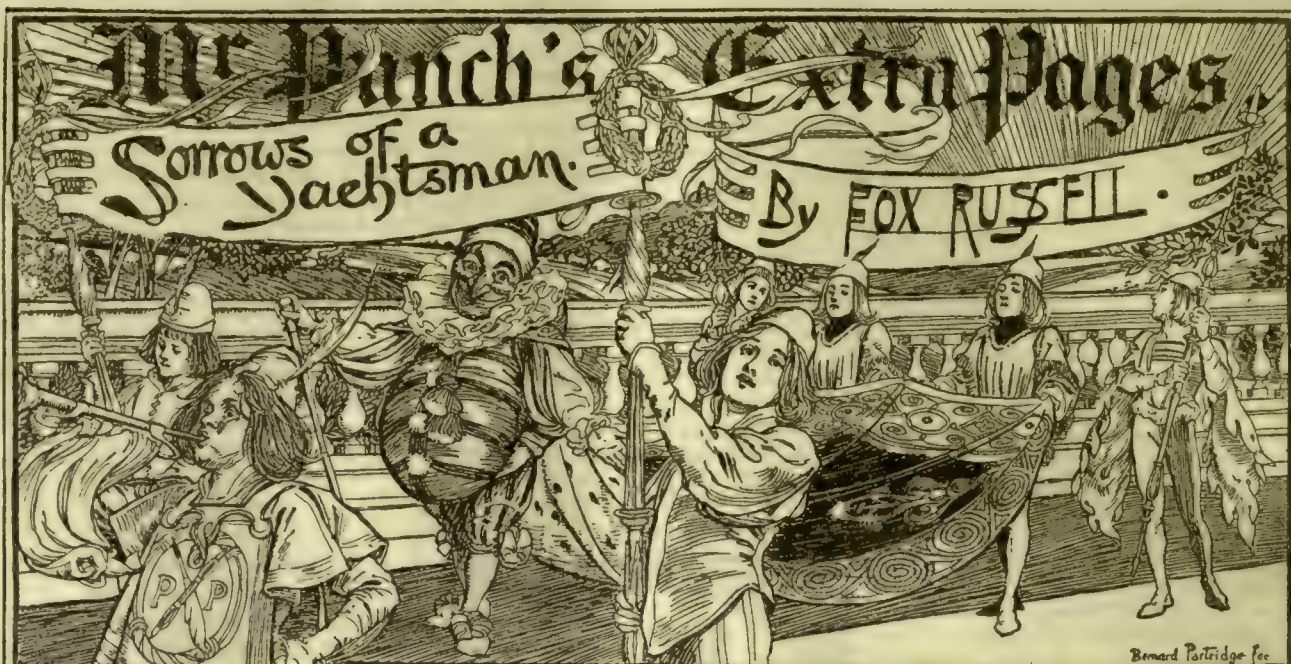 Mr Punch's Extra Pages.
Sorrows of a
Yachtsman.
By FOX RUSSELL.
P P
Bernard Partridge fec